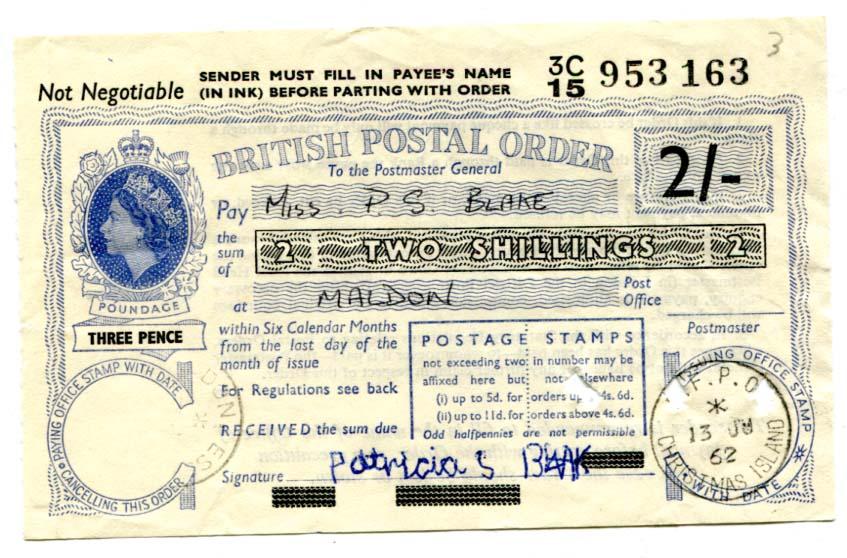 3
Not Negotiable
SENDER MUST FILL IN PAYEE'S NAME
(IN INK) BEFORE PARTING WITH ORDER
3C
15 953 163
BRITISH POSTAL ORDER
To the Postmaster General
2/-
Pay Miss. P S BLAKE
the sum of 2 TWO SHILLINGS 2
at MALDON Post Office
POUNDAGE
THREE PENCE
within Six Calendar Months
from the last day of the
month of issue
For Regulations see back
RECEIVED the sum due
POSTAGE STAMPS
not exceeding two in number may be
affixed here but not elsewhere
(i) up to 5d. for orders up 4s. 6d.
(ii) up to 11d. for orders above 4s. 6d.
Odd halfpennies are not permissible
Postmaster
Signature Patricia S
PAYING OFFICE STAMP WITH DATE
CANCELLING THIS ORDER
DON ESS
ISSUING OFFICE STAMP
WITH DATE
F.P.O
13 JU
62
CHRISTMAS ISLAND